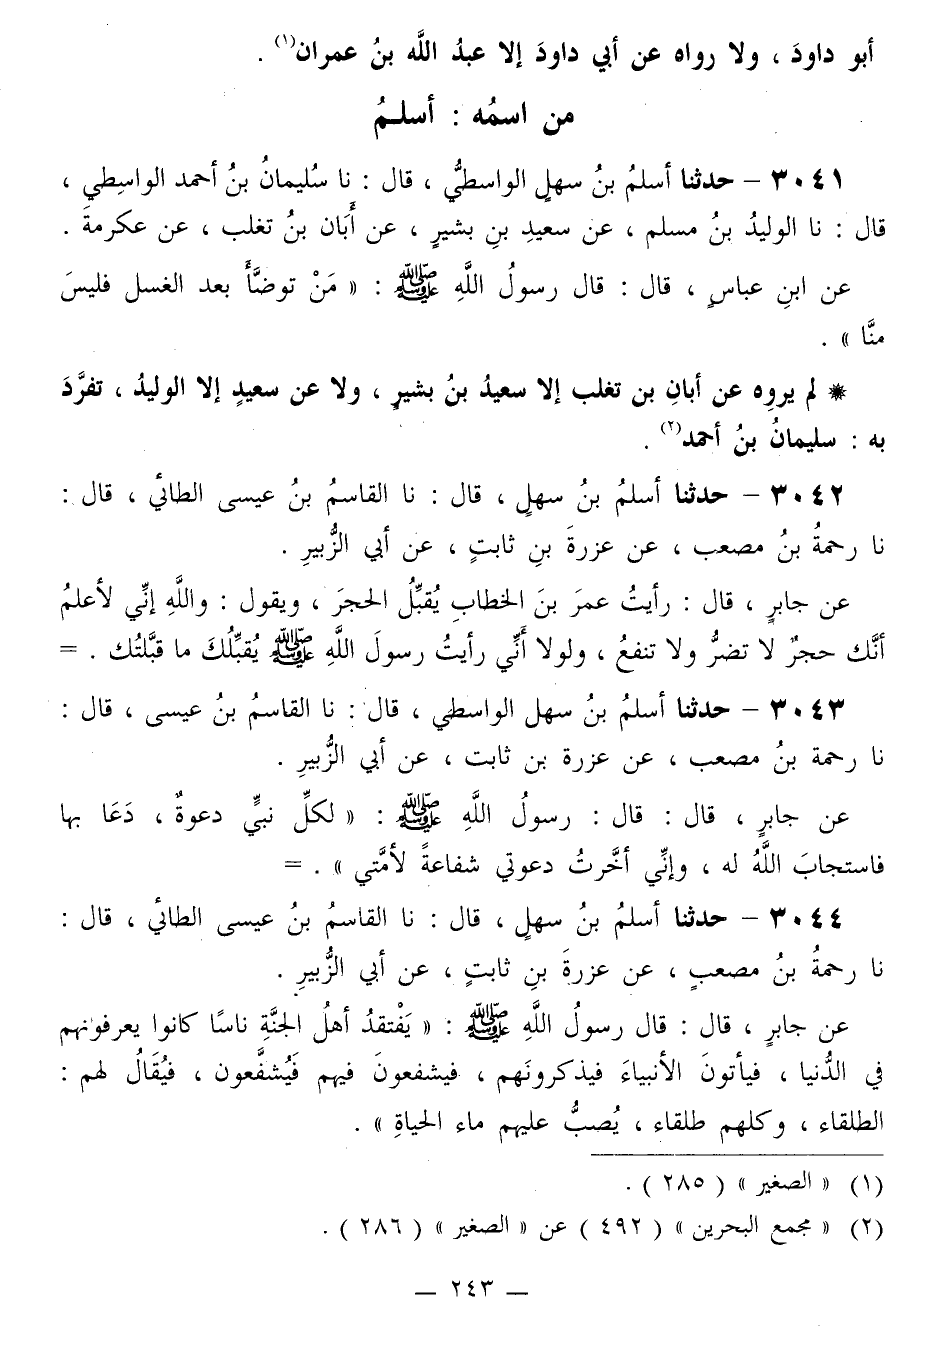 أبو داودَ ، ولا رواه عن أبي داودَ إلا عبدُ اللَّه بنُ عمران(١) .
من اسمُه : أسلمُ
٣٠٤١ – حدثنا أسلمُ بنُ سهلٍ الواسطيُّ ، قال : نا سُليمانُ بنُ أحمد الواسِطي ،
قال : نا الوليدُ بنُ مسلم ، عن سعيدِ بنِ بشيرٍ ، عن أَبَان بنُ تغلب ، عن عكرمةَ .
عن ابنِ عباسٍ ، قال : قال رسولُ اللَّهِ ﷺ : « مَنْ توضَّأَ بعد الغسل فليسَ
منَّا » .
* لم يروِه عن أبانِ بن تغلب إلا سعيدُ بنُ بشيرٍ ، ولا عن سعيدٍ إلا الوليدُ ، تفرَّدَ
به : سليمانُ بنُ أحمد(٢) .
٣٠٤٢ – حدثنا أسلمُ بنُ سهلٍ ، قال : نا القاسمُ بنُ عيسى الطائي ، قال :
نا رحمةُ بنُ مصعب ، عن عزرةَ بنِ ثابتٍ ، عن أبي الزُّبيرِ .
عن جابرٍ ، قال : رأيتُ عمرَ بنَ الخطابِ يُقبِّلُ الحجرَ ، ويقول : واللَّهِ إنِّي لأعلمُ
أنَّك حجرٌ لا تضرُّ ولا تنفعُ ، ولولا أَنِّي رأيتُ رسولَ اللَّهِ ﷺ يُقبِّلُكَ ما قبَّلتُك . =
٣٠٤٣ – حدثنا أسلمُ بنُ سهل الواسطي ، قال : نا القاسمُ بنُ عيسى ، قال :
نا رحمة بنُ مصعب ، عن عزرة بن ثابت ، عن أبي الزُّبيرِ .
عن جابرٍ ، قال : قال : رسولُ اللَّهِ ﷺ : « لكلِّ نبيٍّ دعوةٌ ، دَعَا بها
فاستجابَ اللَّهُ له ، وإنِّي أخَّرتُ دعوتي شفاعةً لأمَّتي » . =
٣٠٤٤ – حدثنا أسلمُ بنُ سهلٍ ، قال : نا القاسمُ بنُ عيسى الطائي ، قال :
نا رحمةُ بنُ مصعبٍ ، عن عزرةَ بنِ ثابتٍ ، عن أبي الزُّبيرِ .
عن جابرٍ ، قال : قال رسولُ اللَّهِ ﷺ : « يَفْتقدُ أهلُ الجنَّةِ ناسًا كانوا يعرفونهم
في الدُّنيا ، فيأتونَ الأنبياءَ فيذكرونَهم ، فيشفعونَ فيهم فَيُشفَّعون ، فيُقَالُ لهم :
الطلقاء ، وكلهم طلقاء ، يُصبُّ عليهم ماء الحياةِ » .
(١) « الصغير » ( ٢٨٥ ) .
(٢) « مجمع البحرين » ( ٤٩٢ ) عن « الصغير » ( ٢٨٦ ) .
— ٢٤٣ —